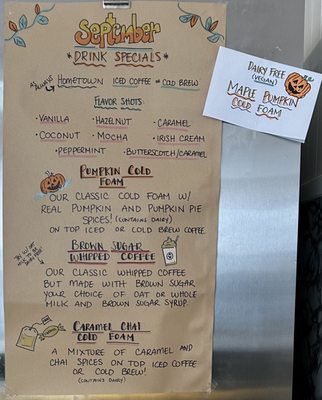 September
DRINK SPECIALS
AS ALWAYS HOMETOWN ICED COFFEE OR COLD BREW
FLAVOR SHOTS
• VANILLA • HAZELNUT • CARAMEL
• COCONUT • MOCHA • IRISH CREAM
• PEPPERMINT • BUTTERSCOTCH/CARAMEL
PUMPKIN COLD
FOAM
OUR CLASSIC COLD FOAM W/
REAL PUMPKIN AND PUMPKIN PIE
SPICES! (CONTAINS DAIRY)
ON TOP ICED OR COLD BREW COFFEE.
BROWN SUGAR
WHIPPED COFFEE
OUR CLASSIC WHIPPED COFFEE
BUT MADE WITH BROWN SUGAR
YOUR CHOICE OF OAT OR WHOLE
MILK AND BROWN SUGAR SYRUP.
CARAMEL CHAI
COLD FOAM
A MIXTURE OF CARAMEL AND
CHAI SPICES ON TOP ICED COFFEE
OR COLD BREW!
(CONTAINS DAIRY)
DAIRY FREE
(VEGAN)
MAPLE PUMPKIN
COLD FOAM